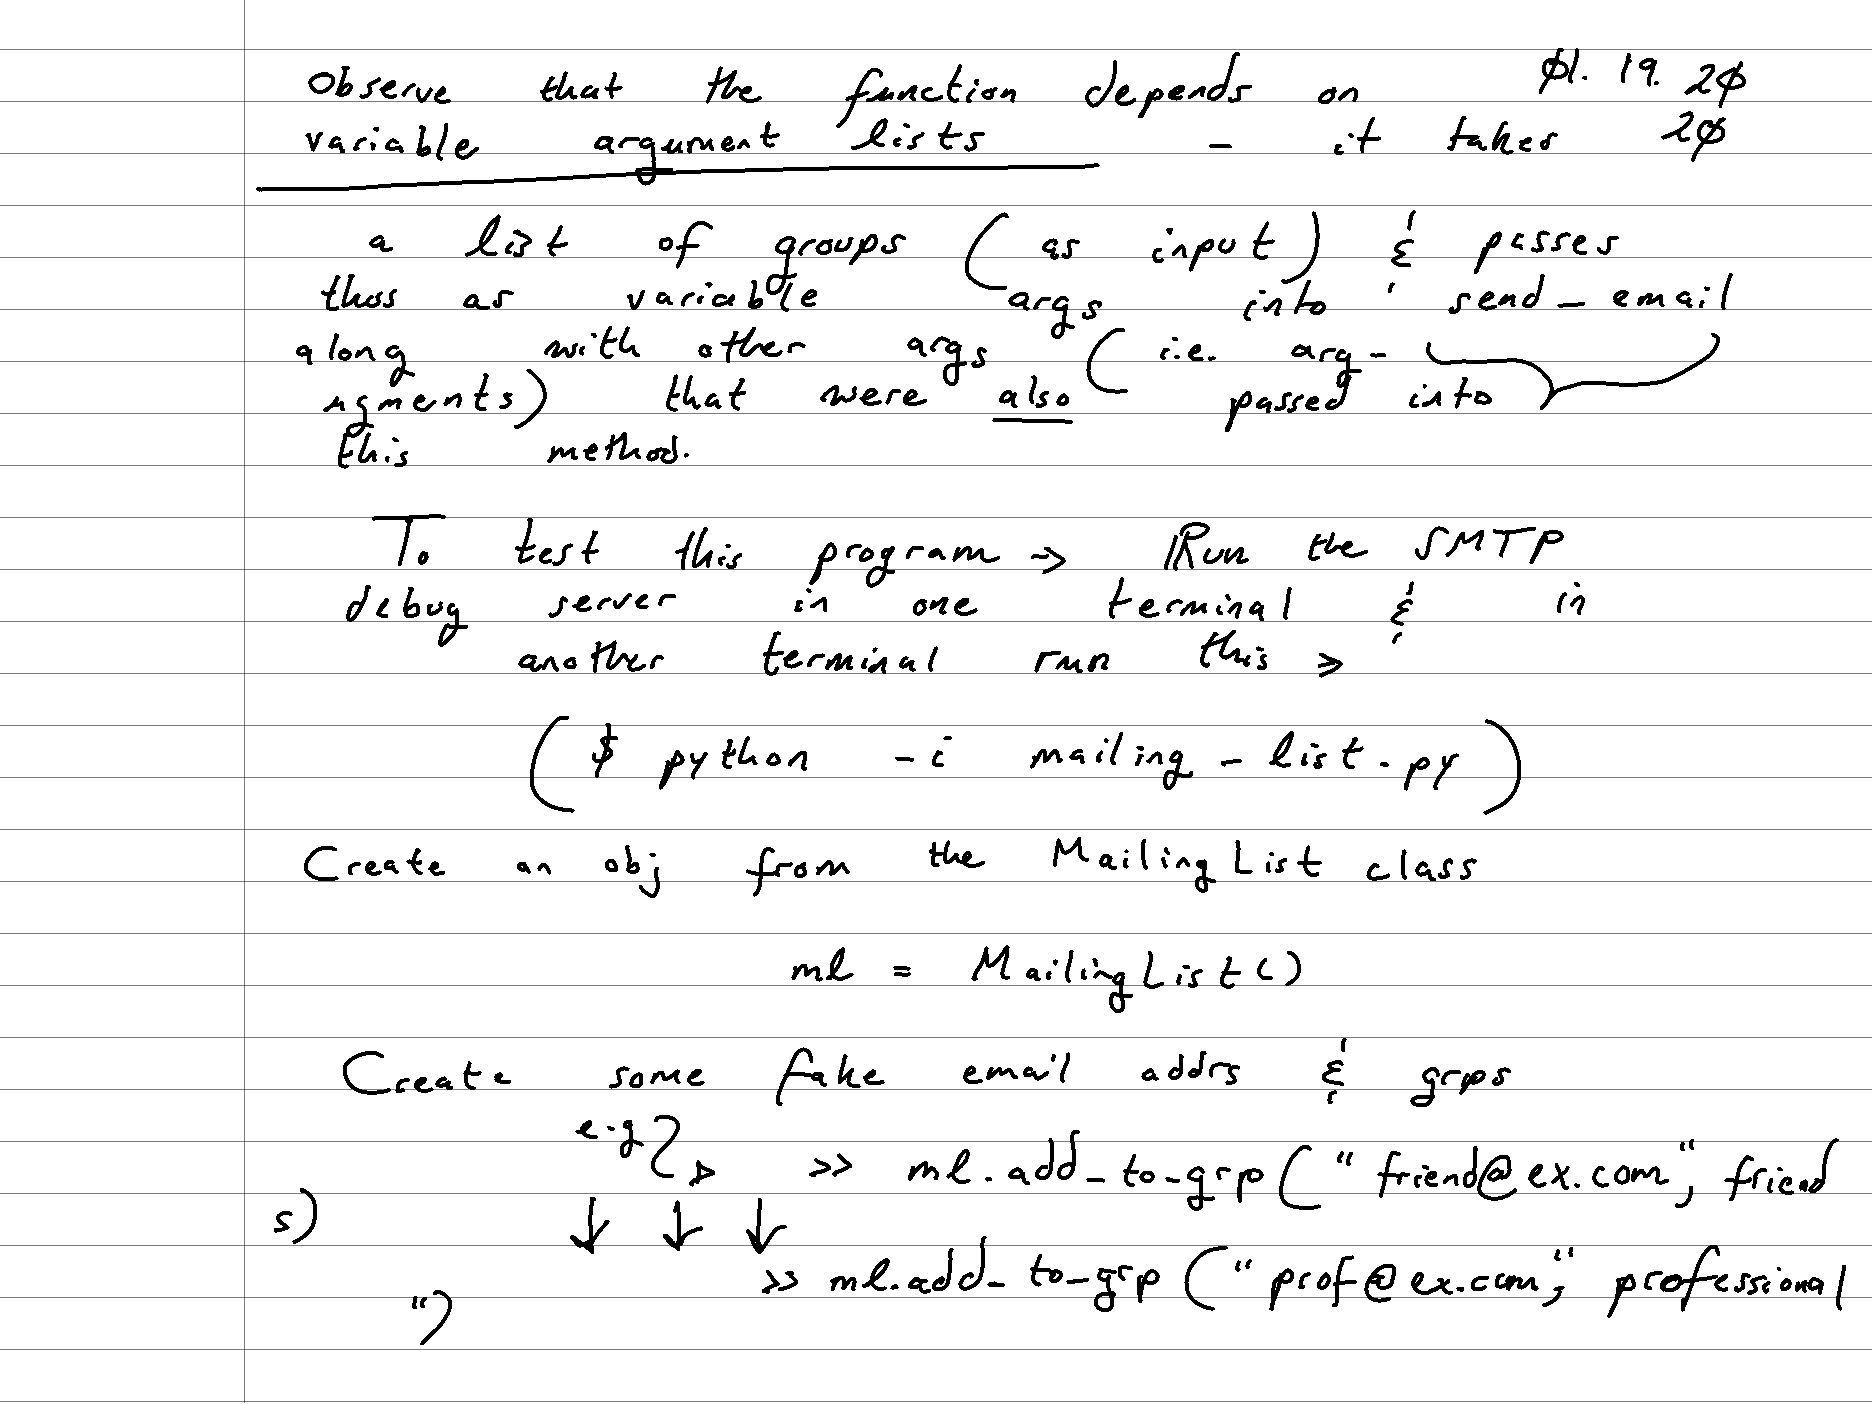 Observe that the function depends on Ø1. 19. 2Ø
variable argument lists - it takes 2Ø
a list of groups (as input) & passes
thos as variable args into send_email
along with other args (i.e. arg-
uments) that were also passed into
this method.
To test this program → Run the SMTP
debug server in one terminal & in
another terminal run this >
($ python -i mailing_list.py)
Create an obj from the MailingList class
ml = MailingList()
Create some fake email addrs & grps
e.g >> ml.add_to_grp("friend@ex.com", friend
s)
>> ml.add_to_grp("prof@ex.com", professional
")